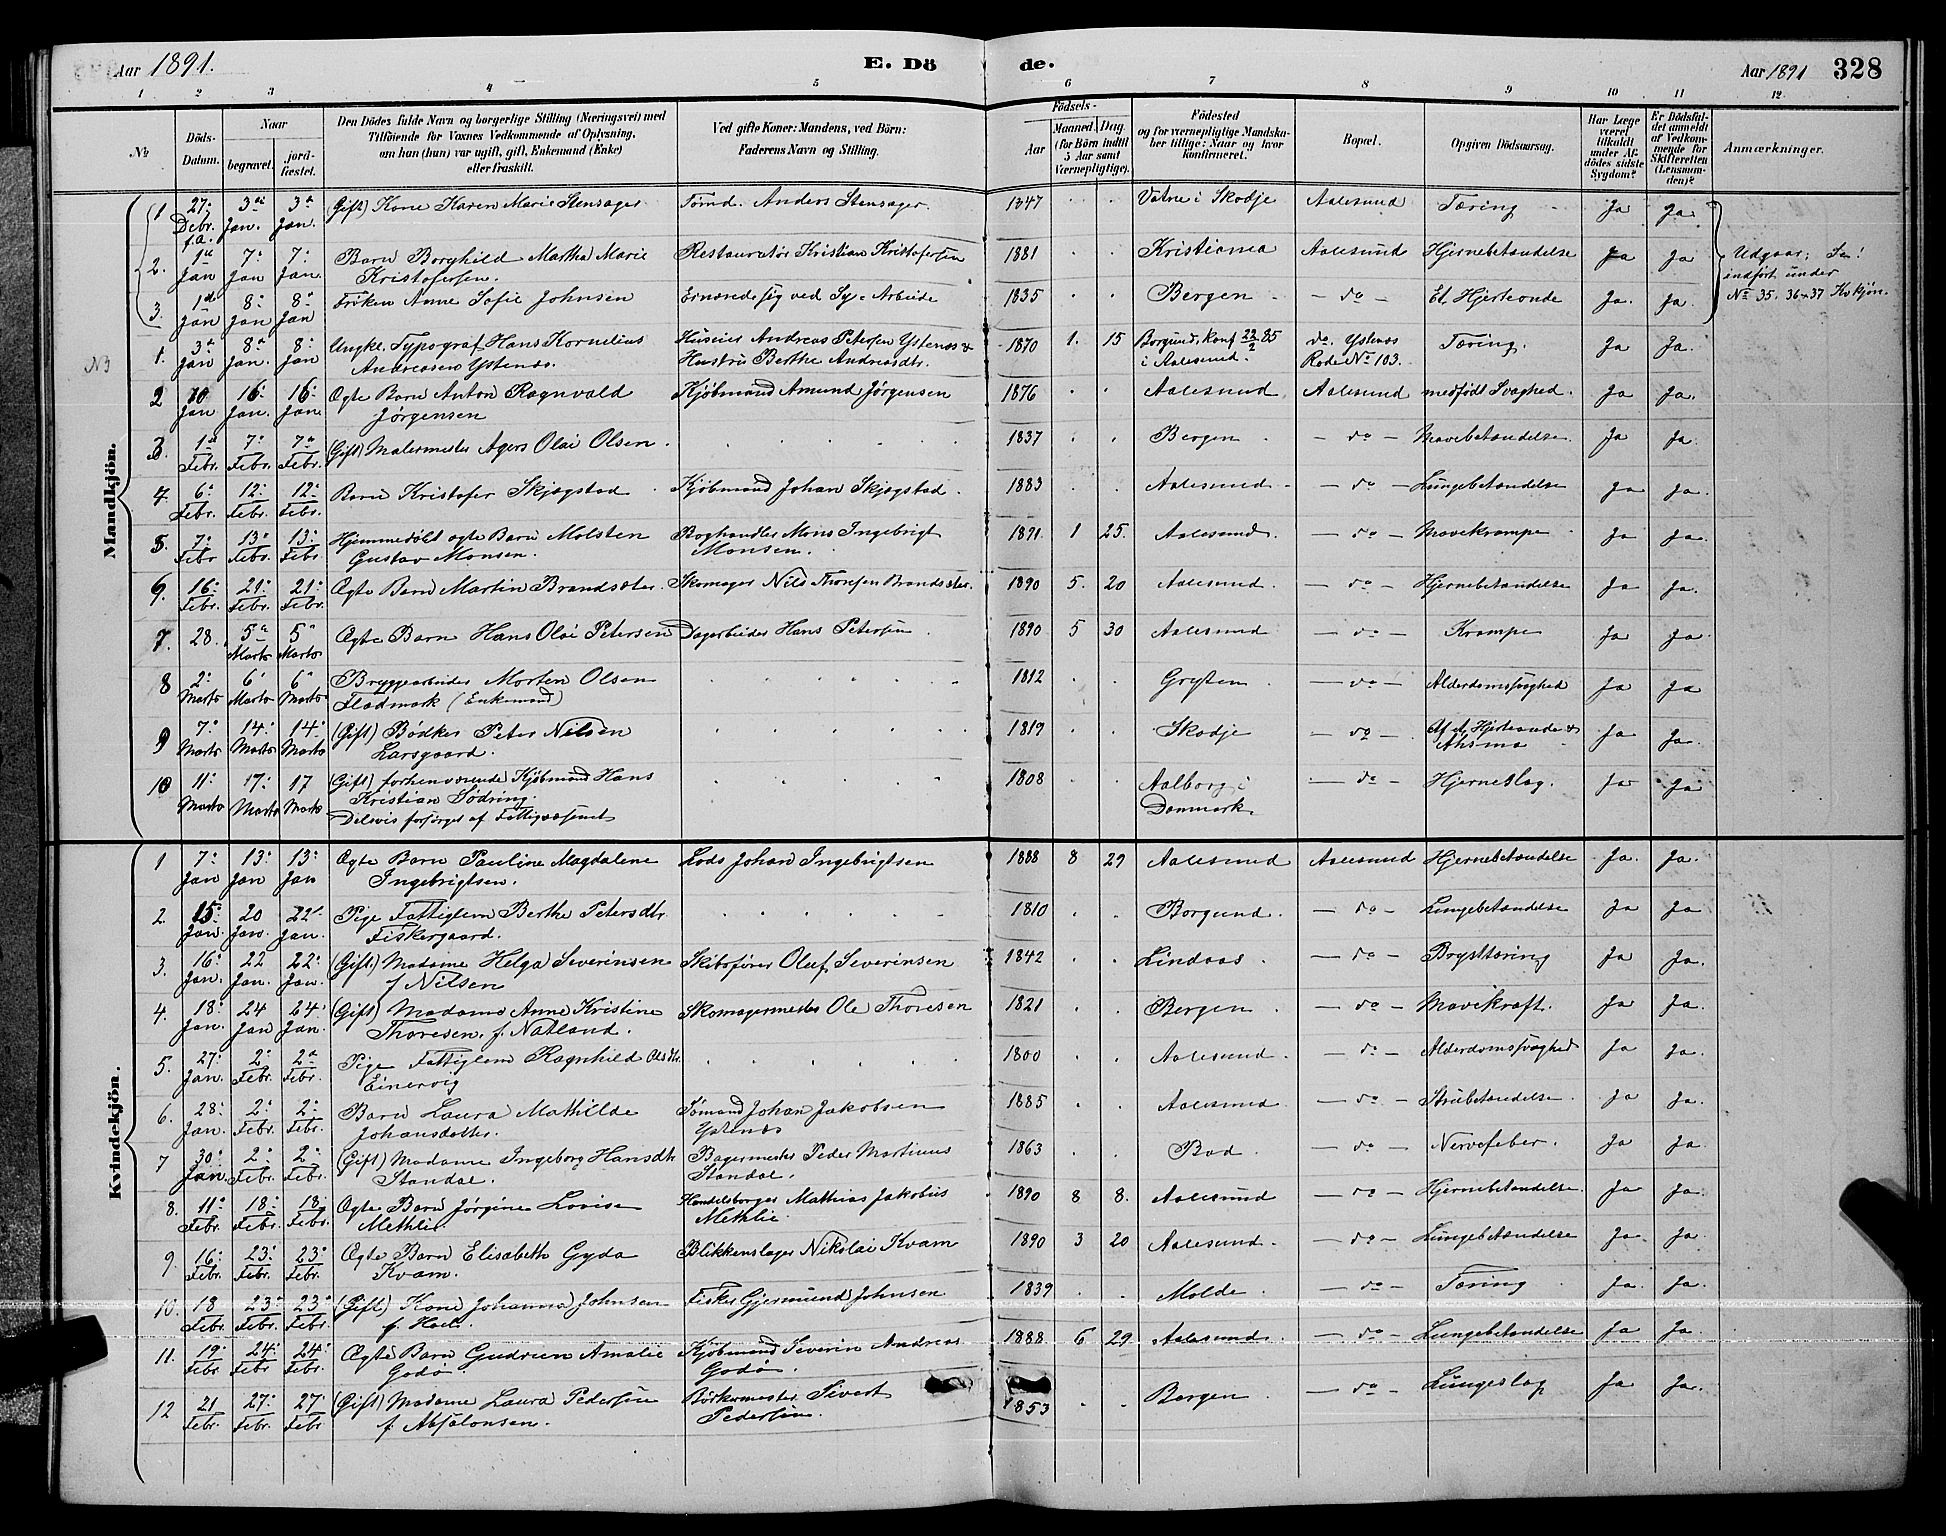 Aar 1891. E. Dö de. Aar 1891 328
1 2 3 4 5 6 7 8 9 10 11 12
No.
Döds-Datum.
Naar
begravet.
jord-fæstet.
Den Dödes fulde Navn og borgerlige Stilling (Næringsvei) med
Tilföiende for Voxnes Vedkommende af Oplysning,
om han (hun) var ugift, gift, Enkemand (Enke)
eller fraskilt.
Ved gifte Koner: Mandens, ved Börn:
Faderens Navn og Stilling.
Födsels-
Aar
Maaned. Dag.
(for Börn indtil
5 Aar samt
Værnepligtige).
Födested
og for værnepligtige Mandska-
ber tillige: Naar og hvor
konfirmeret.
Bopæl.
Opgiven Dödsaarsag.
Har Læge
været
tilkaldt
under Af-
dödes sidste
Sygdom?
Er Dödsfal-
det anmeldt
af Vedkom-
mende for
Skifteretten
(Lensman-
den)?
Anmærkninger.
Mandkjön.
1 27: Debr. f.a. 3die Jan. 3die Jan. (Gift) Kone Karen Marie Stensager Tømd. Anders Stensager. 1847 Vatne i Skodje Aalesund Tæring Ja Ja
2. 1ste Jan 7: Jan 7: Jan. Barn Borghild Martha Marie Restauratør Kristian Kristofersen 1881 Kristiania Aalesund Hjernebetændelse Ja Ja Udgaar; Se!
Kristofersen. indført under
3. 1ste Jan 8: Jan 8: Jan Frøken Anne Sofie Johnsen Ernærede sig ved Sy-Arbeide 1835 Bergen do Et. Hjerteonde Ja. Ja. No 35. 36 & 37 Kvkjøn.
N3
1. 3die Jan 8de Jan. 8: Jan Ungk. Typograf Hans Kornelius Huseier Andreas Petersen Ystenæs & 1870 1. 15 Borgund, Konf 22/2 85 do. Ystenæs Tæring. Ja Ja.
Andreasen Ystenæs. Hustru Berthe Andreasdtr. i Aalesund. Rode No 103.
2 10 Jan 16: Jan. 16: Jan. Ægte Barn Anton Ragnvald Kjøbmand Amund Jørgensen 1876 Aalesund Aalesund medfødt Svaghed. Ja Ja.
Jørgensen
3. 1ste Febr. 7: Febr. 7de Febr. (Gift) Malermester Agers Olai Olsen. 1837 Bergen do Mavebetændelse. Ja Ja.
4. 6: Febr. 12: Febr. 12: Febr. Barn Kristofer Skjægstad Kjøbmand Johan Skjægstad. 1883 Aalesund do Lungebetændelse Ja Ja.
5. 7: Febr 13: Febr. 13: Febr. Hjemmedøbt ægte Barn Molsten Boghandler Mons Ingebrigt 1891 1 25. Aalesund. do Mavekrampe Ja Ja.
Gustav Monsen. Monsen.
6. 16: Febr. 21: Febr. 21: Febr. Ægte Barn Martin Brandsæter. Skomager Nils Thoresen Brandsæter. 1890 5. 20 Aalesund. do Hjernebetændelse Ja Ja.
7. 28. 5te Marts 5te Marts Ægte Barn Hans Olai Petersen Dagarbeider Hans Petersen. 1890 5 30 Aalesund do Krampe Ja Ja.
8 2: Marts 6 Marts 6 Marts Bryggearbeider Morten Olsen 1812 Grytten. do Alderdomssvaghed Ja Ja
Fladmark (Enkemand)
9 7: Marts 14: Marts 14: Marts (Gift) Bødker Peter Nilsen 1819 Skodje do Af et Hjerteonde & Ja Ja.
Larsgaard. Ahsma
10 11: Marts 17: Marts 17 Marts (Gift) forhenværende Kjøbmand Hans 1808 Aalborg i do Hjerneslag. Ja Ja
Kristian Södring. Danmark
Delsvis forsørget af Fattigvæsenet
Kvindekjön.
1 7: Jan 13: Jan 13: Jan Ægte Barn Pauline Magdalene Lods Johan Ingebrigtsen 1888 8 29 Aalesund Aalesund Hjernebetændelse Ja. Ja.
Ingebrigtsen.
2. 15: Jan. 20 Jan. 22: Jan. Pige Fattiglem Berthe Petersdtr. 1810 Borgund. do Lungebetændelse Ja Ja
Fiskergaard.
3. 16: Jan. 22 Jan. 22: Jan. (Gift.) Madame Helga Severinsen Skibsfører Oluf Severinsen 1842 Lindaas. do Brysttæring Ja Ja.
f Nilsen
4. 18: Jan. 24 Jan 24: Jan. (Gift) Madame Anne Kristine Skomagermester Ole Thoresen 1821 Bergen do Mavekræft. Ja Ja.
Thoresen, f. Natland.
5. 27: Jan. 2: Febr. 2den Febr. Pige Fattiglem Ragnhild Olsdtr. 1800 Aalesund. do Alderdomssvaghed Ja Ja.
Einervig
6. 28: Jan. 2: Febr. 2: Febr. Barn Laura Mathilde Sømand Johan Jakobsen 1885 Aalesund do Strubetændelse Ja Ja.
Johansdatter. Ystenæs
7 30: Jan. 2: Febr. 2: Febr. (Gift) Madame Ingeborg Hansdtr Bagermester Peder Martinus 1863 Bod. do Nervefeber. Ja Ja.
Standal. Standal.
8. 11: Febr. 18: Febr. 18: Febr. Ægte Barn Jørgine Lovise Handelsborger Mathias Jakobus 1890 8 8. Aalesund do Hjernebetændelse. Ja Ja.
Methlie. Methlie.
9. 16: Febr. 23: Febr. 23: Febr. Ægte Barn Elisabeth Gyda Blikkenslager Nikolai Kvam 1890 3 20 Aalesund. do Lungebetændelse Ja. Ja.
Kvam.
10. 18 Febr. 23: Febr. 23: Febr. (Gift) Kone Johanna Johnsen Fisker Gjermund Johnsen 1839 Molde. do Tæring Ja. Ja.
f. Hoel.
11. 19: Febr 24: Febr. 24: Febr. Ægte Barn Gudrun Amalie Kjøbmand Severin Andreas 1888 6 29 Aalesund. do Lungebetændelse Ja Ja.
Godø. Godø.
12 21 Febr. 27: Febr. 27 Febr (Gift) Madame Laura Pedersen Bødkermester Sivert 1853 Bergen do Lungeslag Ja Ja.
f. Absalonsen. Pedersen.